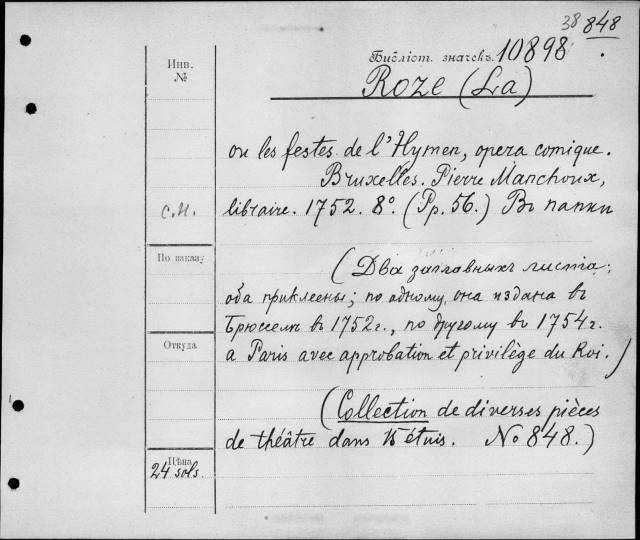 38 848
Библіот. значекъ. 10898.
Инв.
№
Roze (La)
ou les festes de l'Hymen, opera comique.
Bruxelles. Pierre Manchoux,
С.Н.
libraire. 1752. 8º. (Pp. 56.) Въ папки
По заказу
(Два заглавныхъ листа;
оба приклеены; по одному, она издана въ
Брюсселѣ въ 1752 г., по другому въ 1754 г.
Откуда
a Paris avec approbation et privilège du Roi.)
(Collection de diverses pièces
de théâtre dans 15 étuis. No 848.)
Цѣна
24 sols.